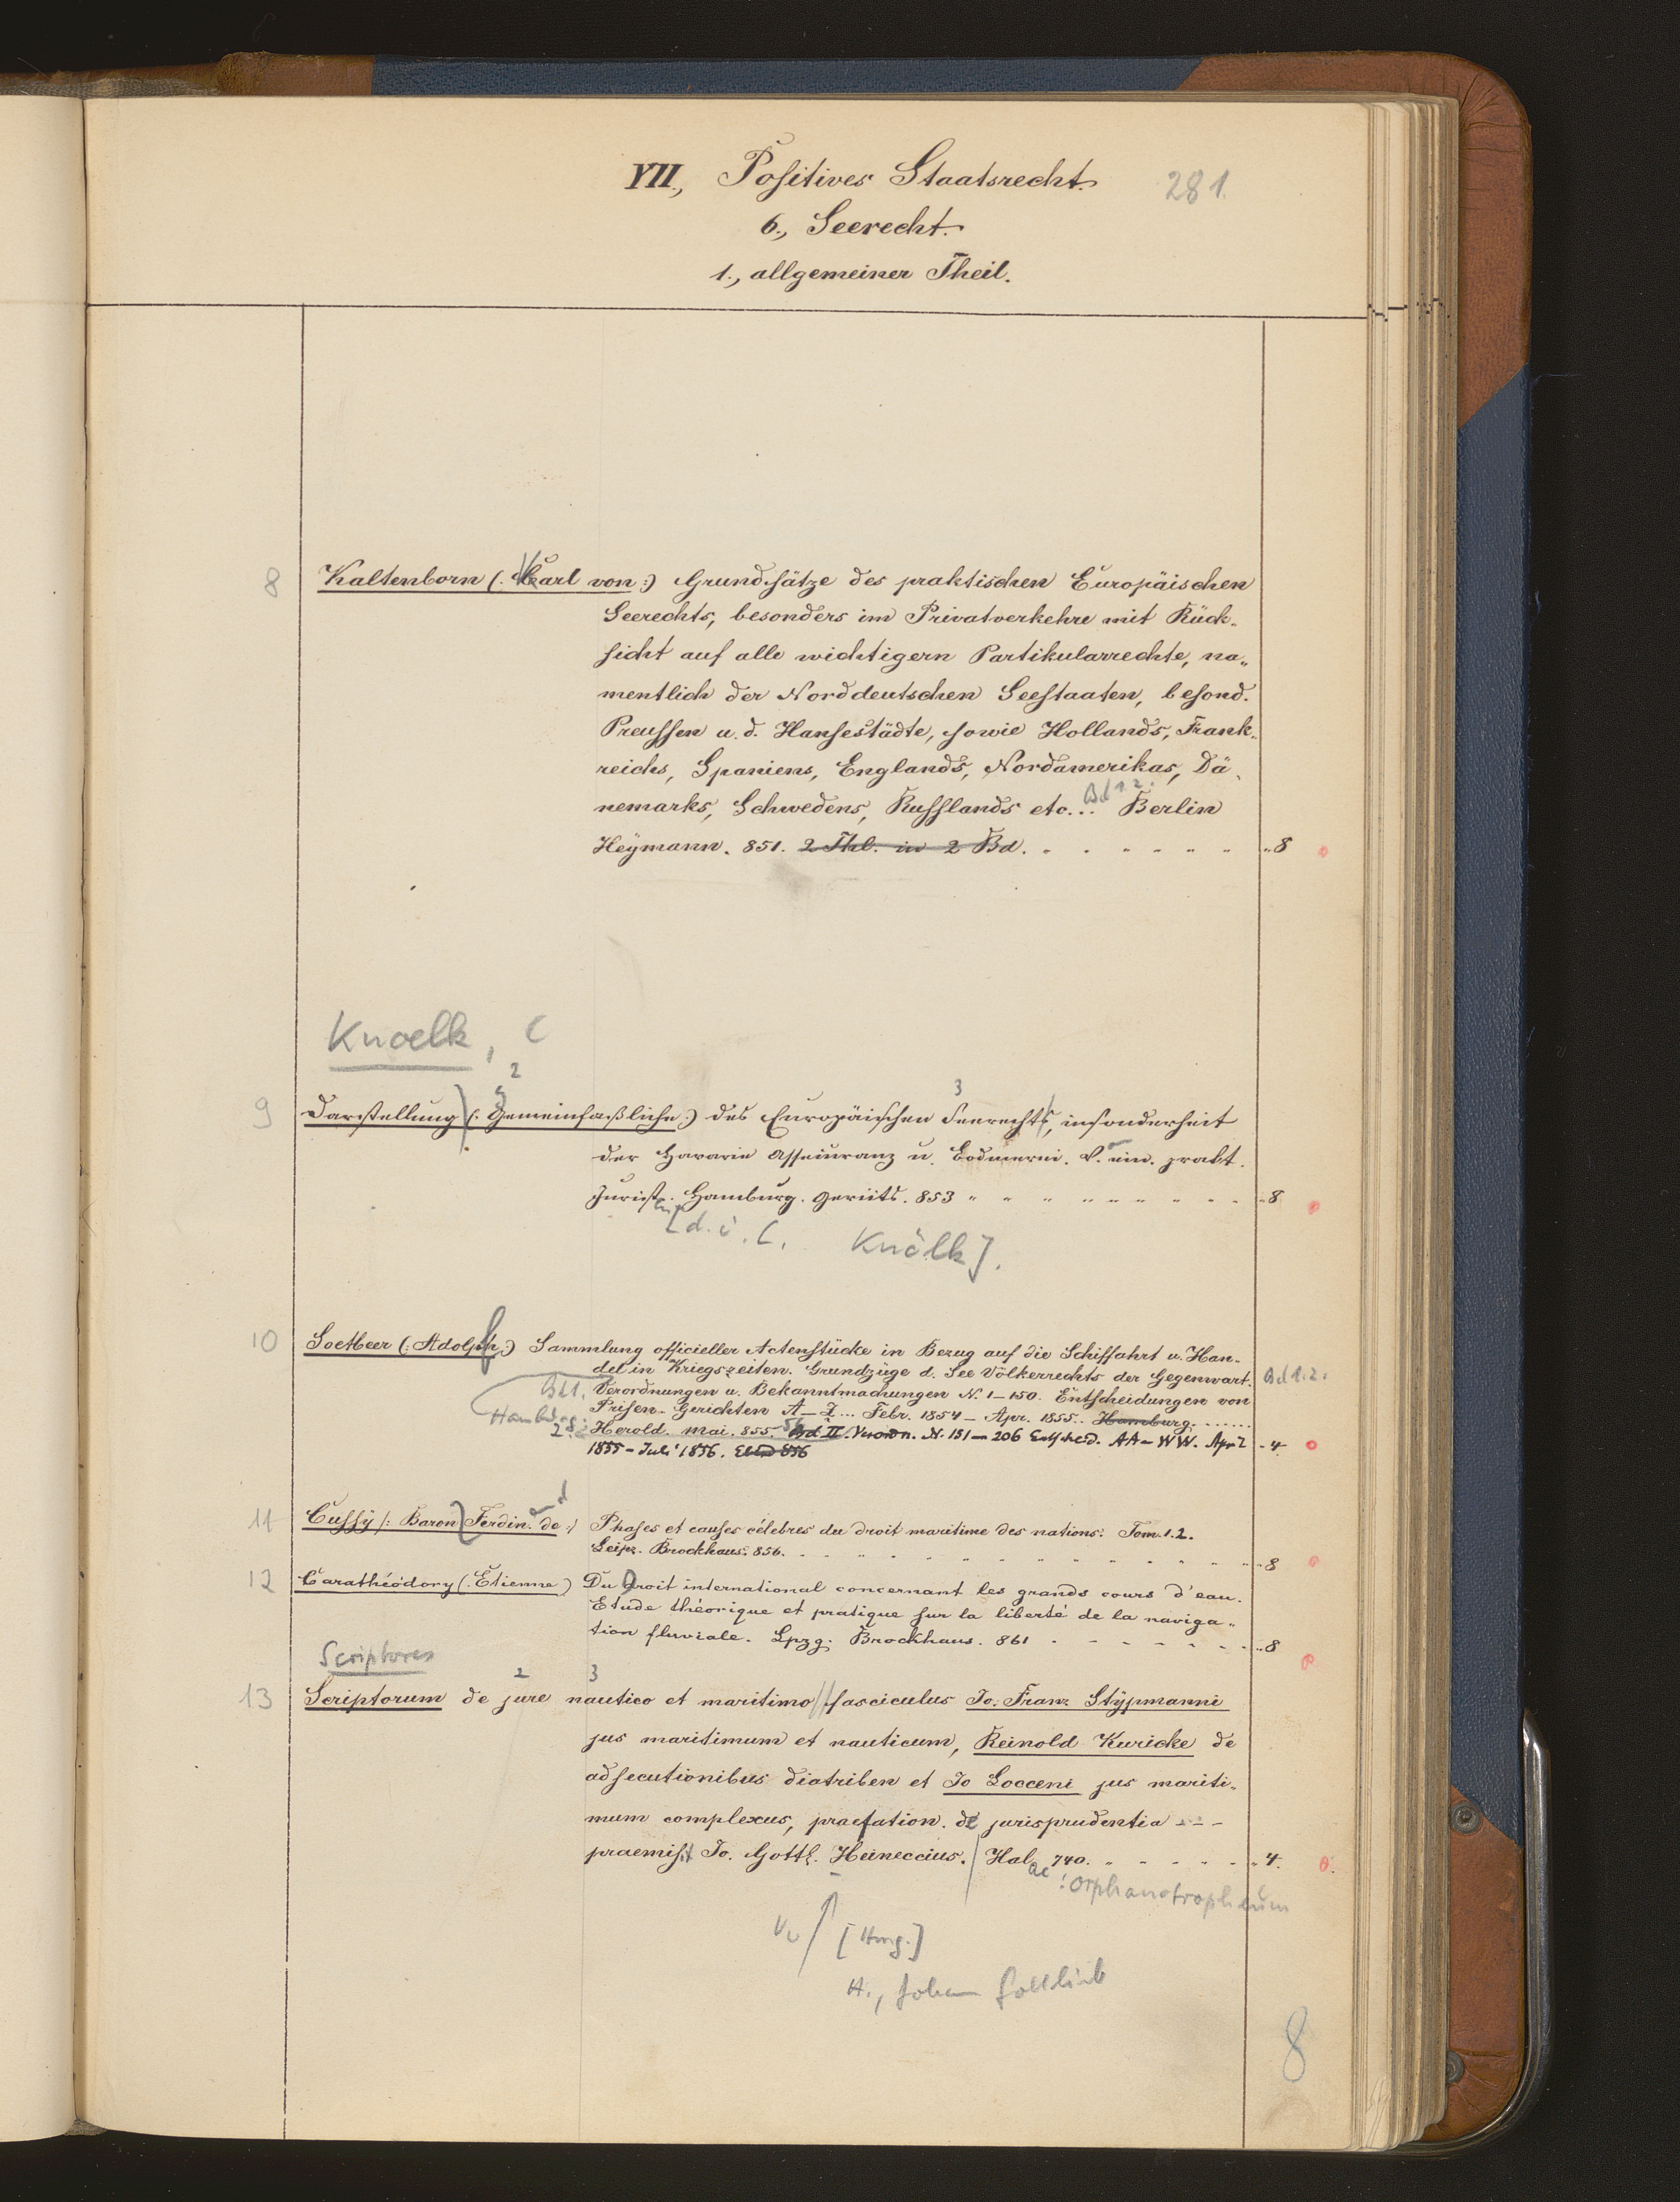 YII., Positives Staatsrecht. 281.
6., Seerecht.
1., allgemeiner Theil.
8 Kaltenborn (: Carl von :) Grundsätze des praktischen Europäischen
Seerechts, besonders im Privatverkehre mit Rück-
sicht auf alle wichtigern Partikularrechte, na-
mentlich der Norddeutschen Seestaaten, besond.
Preussen u. d. Hansestädte, sowie Hollands, Frank-
reichs, Spaniens, Englands, Nordamerikas, Dä-
nemarks, Schwedens, Russlands etc... Bd 1.2. Berlin
Heymann. 851. 2 Thl. in 2 Bd. 8
Knoelk, C
2 3
9 Darstellung (: Gemeinfaßliche :) des Europäischen Seerechts, insonderheit
der Havarie Assecuranz u. Bodmerei. V. ein. prakt.
Jurist. Hamburg. Geriits. 853 8
[d. i. C. Knölk].
10 Soetbeer (: Adolph :) Sammlung officieller Actenstücke in Bezug auf die Schiffahrt u. Han-
del in Kriegszeiten. Grundzüge d. See Völkerrechts der Gegenwart. Bd 1.2.
Bd 1. Verordnungen u. Bekanntmachungen N. 1–150. Entscheidungen von
Prisen-Gerichten A–Z... Febr. 1854 – Apr. 1855.. Hamburg.......
Hamburg: Herold. Mai. 855. 56 Bd II. Verordn. N. 151–206 Entscheid. AA–WW. April 4.
1855 – Juli 1856. Ebd 856
11 Cussy (: Baron Ferdin. de :) Phases et causes célebres du droit maritime des nations. Tom. 1.2.
Leipz. Brockhaus. 856. 8
12 Carathéodory (: Etienne) Du Droit international concernant les grands cours d'eau.
Etude théorique et pratique sur la liberté de la naviga-
tion fluviale. Lpzg. Brockhaus. 861 8
Scriptores
2 3
13 Scriptorum de jure nautico et maritimo fasciculus Jo. Franz Stypmanni
jus maritimum et nauticum, Reinold Kuricke de
adsecutionibus diatriben et Jo Locceni jus mariti-
mum complexus, praefation. de jurisprudentia - - -
praemisit Jo. Gottl. Heineccius. Halae 740. 4.
: Orphanotropheum
[Hrsg.]
H., Johann Gottlieb
8